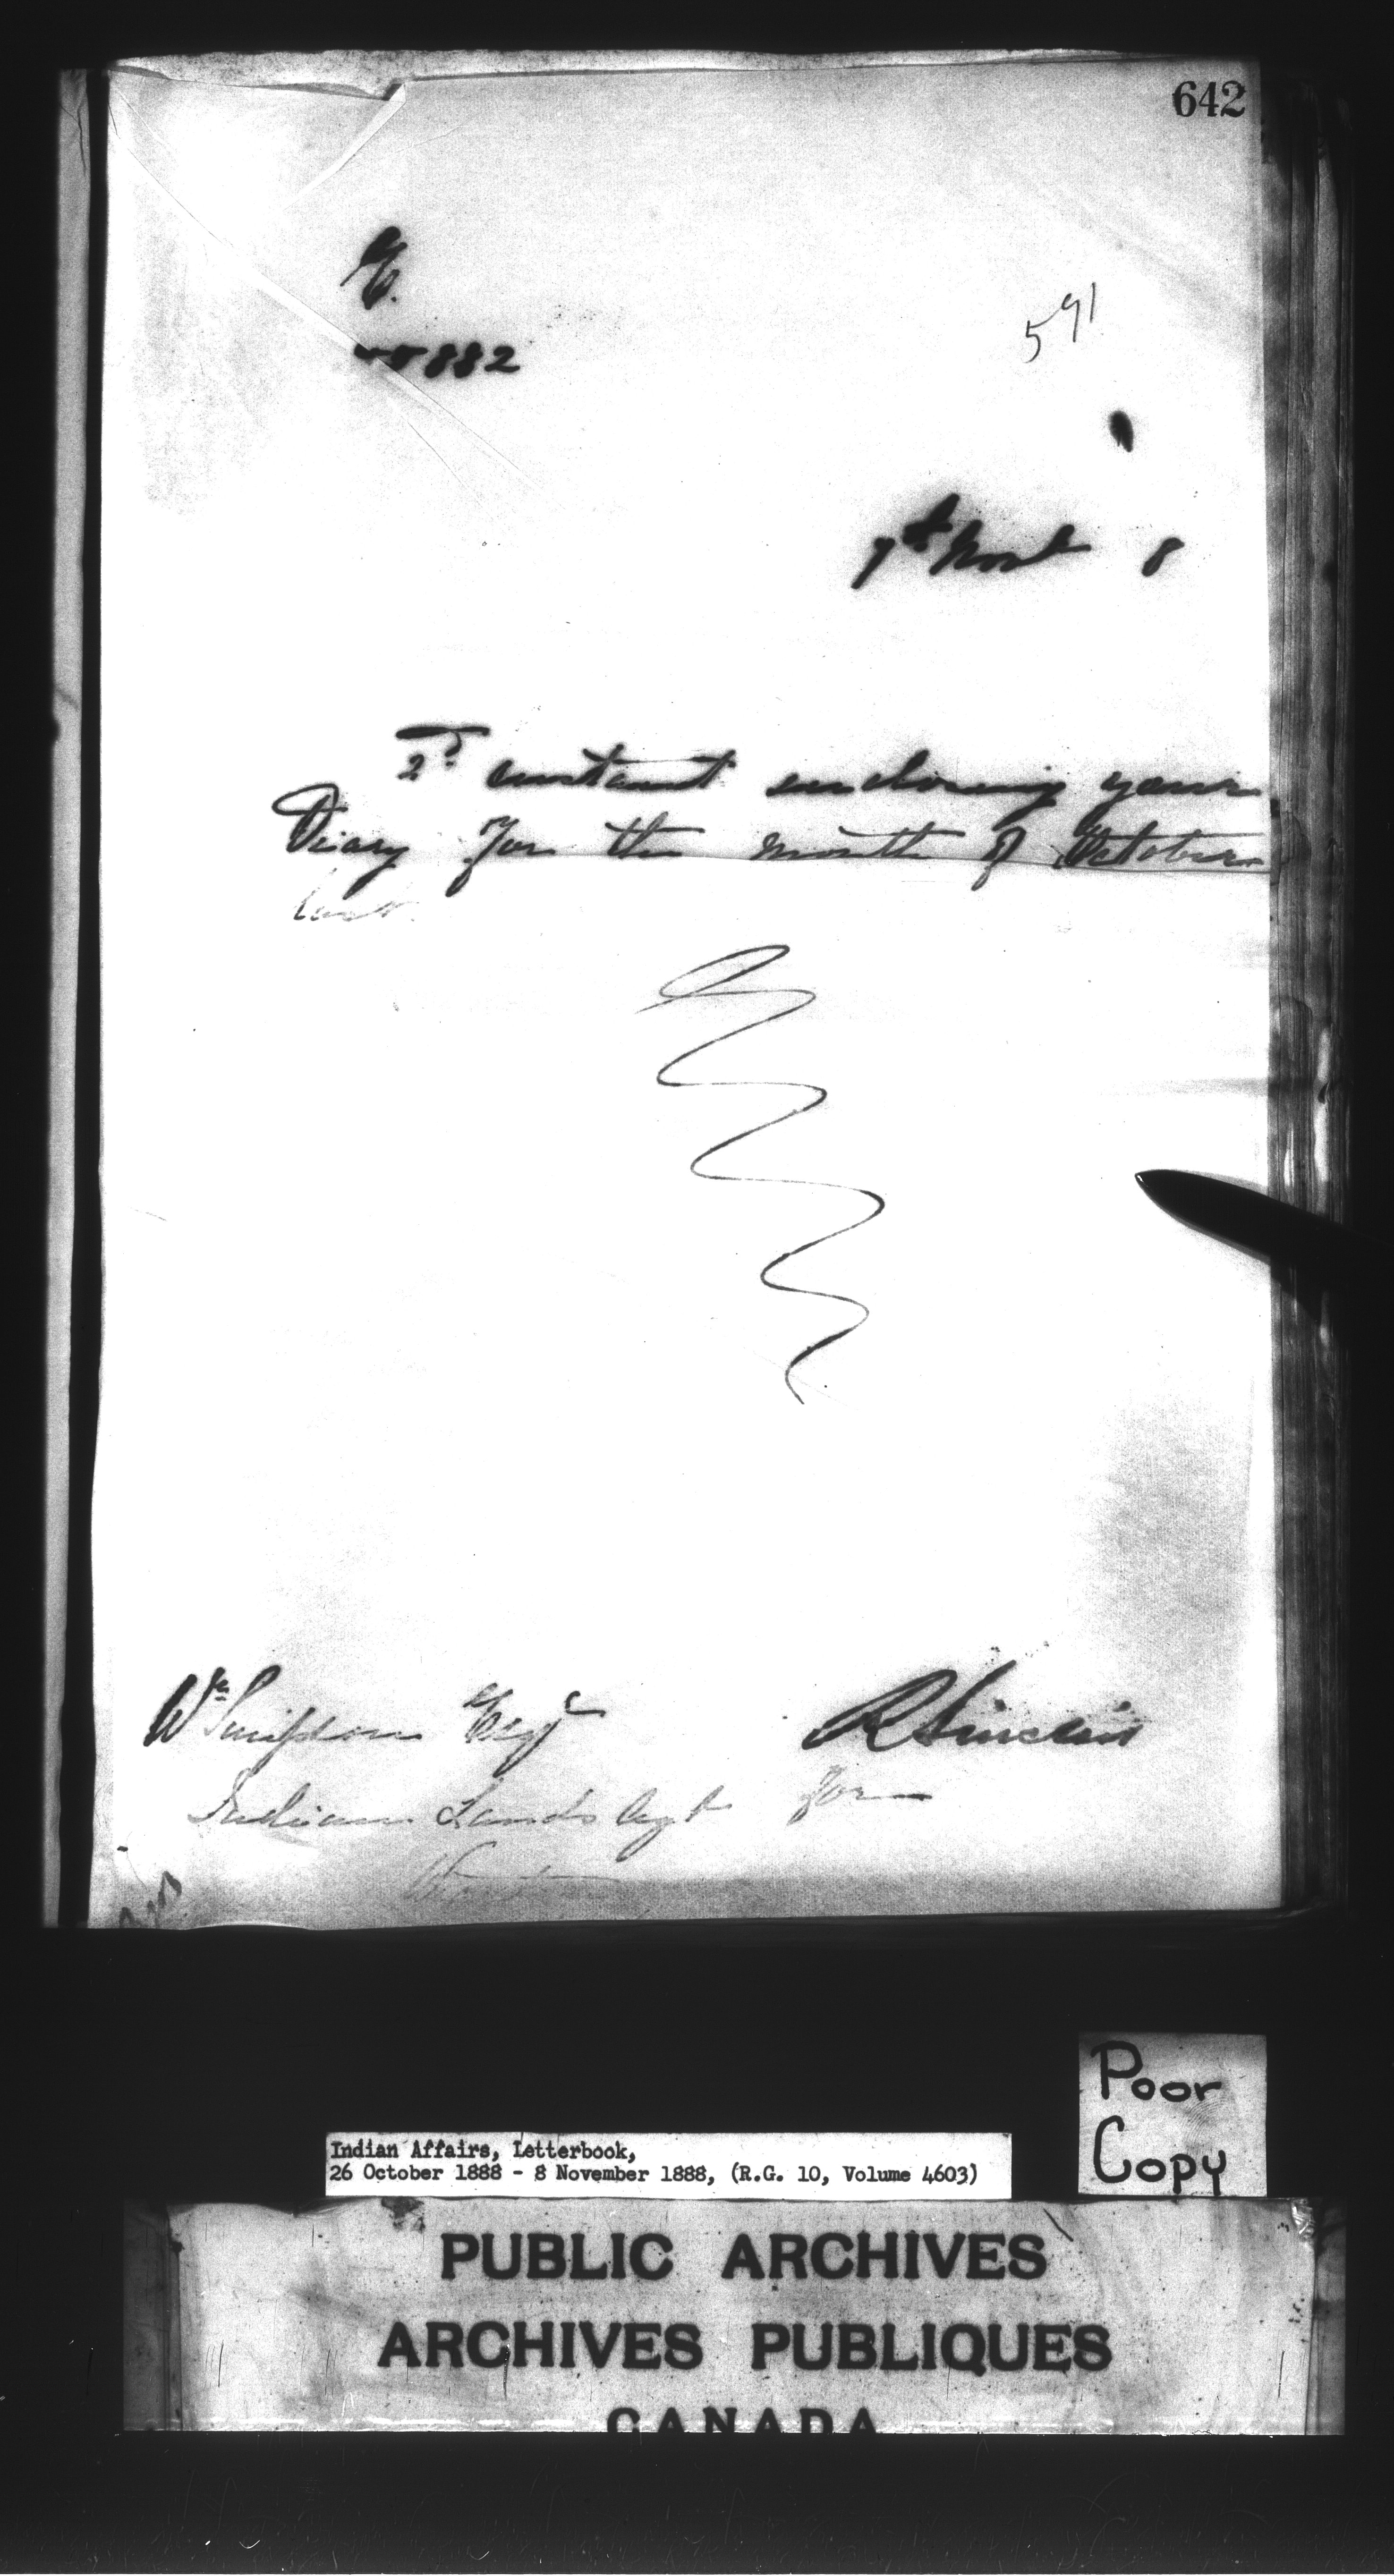 642
591
882
7th Novr 8
2d instant enclosing your
Diary for the month of October
last.
Wm Simpson Esqr
R Sinclair
Indian Lands Agt for
Poor
Copy
Indian Affairs, Letterbook,
26 October 1888 - 8 November 1888, (R.G. 10, Volume 4603)
PUBLIC ARCHIVES
ARCHIVES PUBLIQUES
CANADA